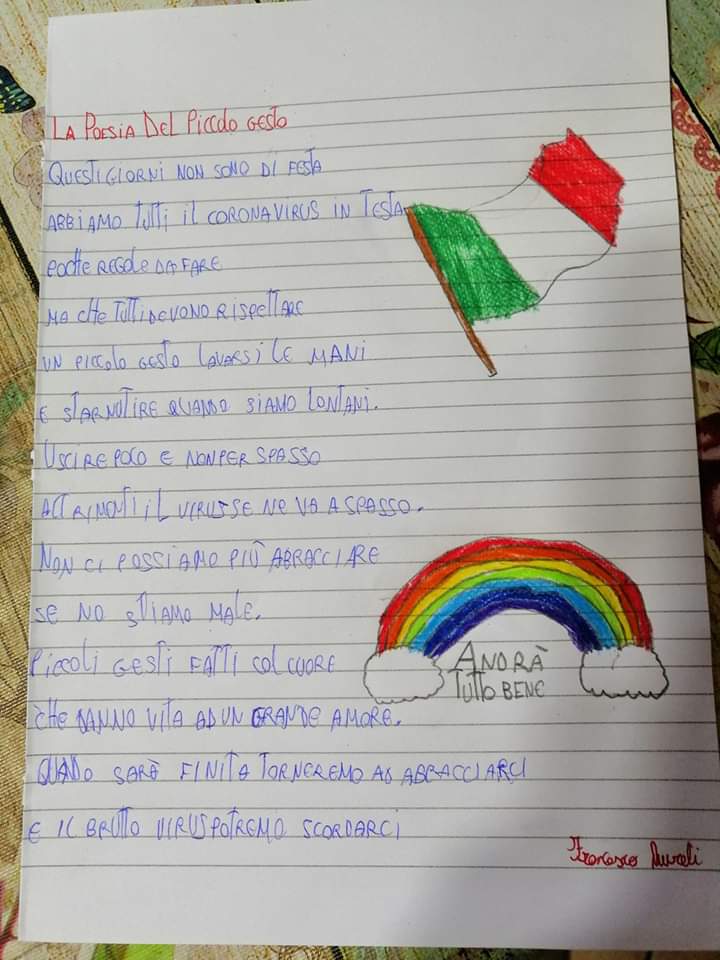 LA POESIA DEL PICCOLO GESTO
QUESTI GIORNI NON SONO DI FESTA
ABBIAMO TUTTI IL CORONAVIRUS IN TESTA
POCHE REGOLE DA FARE
MA CHE TUTTI DEVONO RISPETTARE
UN PICCOLO GESTO LAVARSI LE MANI
E STARNUTIRE QUANDO SIAMO LONTANI.
USCIRE POCO E NON PER SPASSO
ALTRIMENTI IL VIRUS SE NE VA A SPASSO.
NON CI POSSIAMO PIÙ ABRACCIARE
SE NO STIAMO MALE.
PICCOLI GESTI FATTI COL CUORE
CHE DANNO VITA AD UN GRANDE AMORE.
QUANDO SARÀ FINITA TORNEREMO AD ABRACCIARCI
E IL BRUTTO VIRUS POTREMO SCORDARCI
ANDRÀ
TUTTO BENE
Francesco